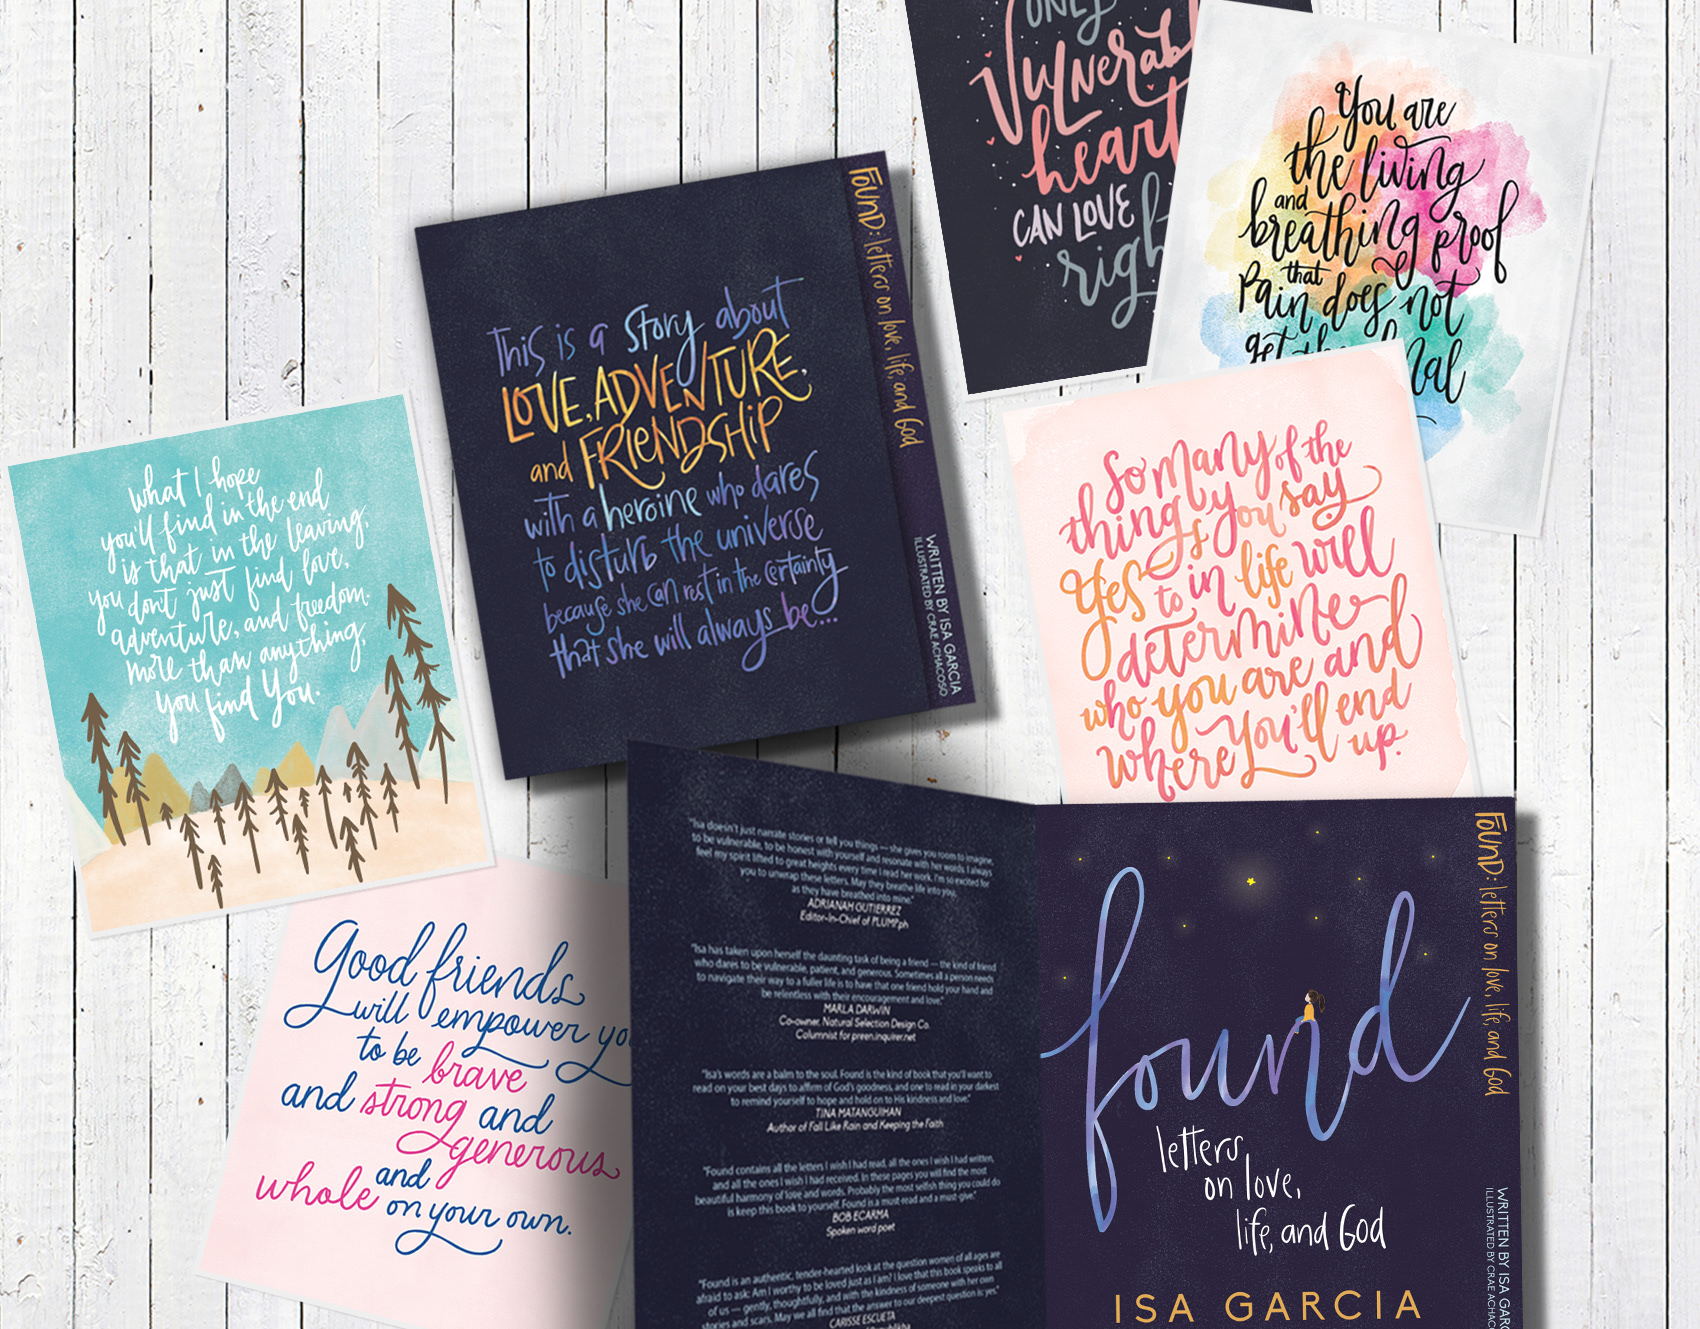 ONLY
Vulnerab
heart
CAN LOVE
righ
You are
the living
and
breathing proof
that
Pain does not
get the
al
FOUND: letters on love, life, and God
WRITTEN BY ISA GARCIA
ILLUSTRATED BY CRAE ACHACOSO
This is a story about
LOVE, ADVENTURE,
and FRIENDSHIP
with a heroine who dares
to disturb the universe
because she can rest in the certainty
that she will always be...
what I hope
you'll find in the end
is that in the leaving,
you don't just find love,
adventure, and freedom.
more than anything,
you find You.
So many of the
things you say
Yes to in life will
determine
who you are and
where you'll end
up.
Good friends
will empower yo
to be brave
and strong and
generous
and
whole on your own.
"Isa doesn't just narrate stories or tell you things — she gives you room to imagine,
to be vulnerable, to be honest with yourself and resonate with her words. I always
feel my spirit lifted to great heights every time I read her work. I'm so excited for
you to unwrap these letters. May they breathe life into you,
as they have breathed into mine."
ADRIANAH GUTIERREZ
Editor-In-Chief of PLUMP.ph
"Isa has taken upon herself the daunting task of being a friend — the kind of friend
who dares to be vulnerable, patient, and generous. Sometimes all a person needs
to navigate their way to a fuller life is to have that one friend hold your hand and
be relentless with their encouragement and love."
MARLA DARWIN
Co-owner, Natural Selection Design Co.
Columnist for preen.inquirer.net
"Isa's words are a balm to the soul. Found is the kind of book that you'll want to
read on your best days to affirm of God's goodness, and one to read in your darkest
to remind yourself to hope and hold on to His kindness and love."
TINA MATANGUIHAN
Author of Fall Like Rain and Keeping the Faith
"Found contains all the letters I wish I had read, all the ones I wish I had written,
and all the ones I wish I had received. In these pages you will find the most
beautiful harmony of love and words. Probably the most selfish thing you could do
is keep this book to yourself. Found is a must read and a must-give."
BOB ECARMA
Spoken word poet
"Found is an authentic, tender-hearted look at the question women of all ages are
afraid to ask: Am I worthy to be loved just as I am? I love that this book speaks to all
of us — gently, thoughtfully, and with the kindness of someone with her own
stories and scars. May we all find that the answer to our deepest question is yes."
CARISSE ESCUETA
found
letters
on love,
life, and God
ISA GARCIA
FOUND: letters on love, life, and God
WRITTEN BY ISA GARC
ILLUSTRATED BY CRAE ACHACO